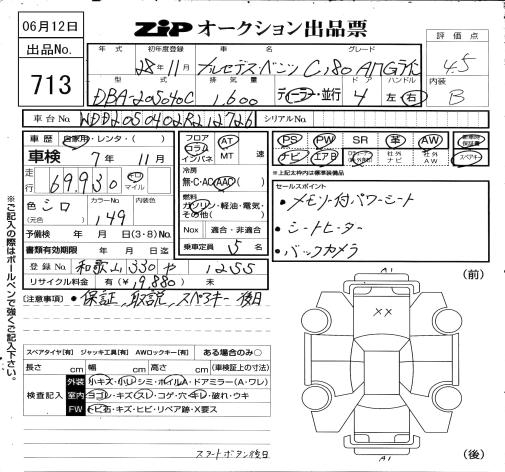 06月12日
ZiP オークション出品票
出品No.
713
評価点
4.5
内装
B
年式 初年度登録 車名 グレード
28年11月 メルセデス・ベンツ C180 AMGライン
型式 排気量 ドア ハンドル
DBA-205040C 1,600 ディーラー・並行 4 左・右
車台No. WDD2050402R212726 シリアルNo.
車歴 自家用・レンタ・( )
車検 7年 11月
走行 69,930 km マイル
色 シロ (元色) カラーNo. 149 内装色
予備検 年 月 日(3・8)No.
書類有効期限 年 月 日迄
登録No. 和歌山 330 や 1255
リサイクル料金 有(¥19,880) 未
フロア コラム インパネ AT MT 速
冷房 無・C・AC・AAC
燃料 ガソリン・軽油・電気・その他( )
Nox 適合・非適合
乗車定員 5 名
PS PW SR 革 AW
ナビ エアB 社外ナビ 社外AW
スペアキー
※上記太枠内は標準装備品
セールスポイント
・メモリー付パワーシート
・シートヒーター
・バックカメラ
(注意事項) ・保証、取説、スペアキー 後日
※ご記入の際はボールペンで強くご記入下さい。
スペアタイヤ[有] ジャッキ工具[有] AWロックキー[有] ある場合のみ○
長さ cm 幅 cm 高さ cm (車検証上の寸法)
検査記入
外装 小キズ・小L・シミ・ホイルA・ドアミラー(A・ワレ)
室内 ヨゴレ・キズ・スレ・コゲ・穴・キレ・破れ・ウキ
FW トビ石・キズ・ヒビ・リペア跡・X要ス
スマートボタン後日
(前)
A1
××
A1
(後)